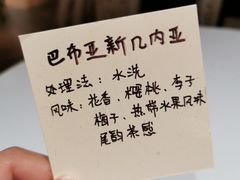 巴布亚新几内亚
处理法：水洗
风味：花香、樱桃、李子
梅子、热带水果风味
尾韵茶感